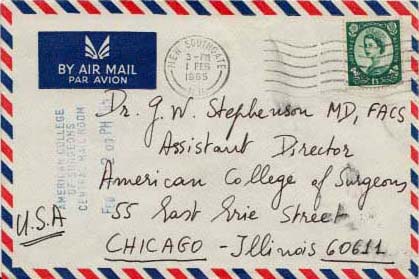 NEW SOUTHGATE
3-PM
1 FEB
1965
BY AIR MAIL
PAR AVION
AMERICAN COLLEGE
OF SURGEONS
CENTRAL MAIL ROOM
FEB
PM
Dr. G. W. Stephenson MD, FACS
Assistant Director
American College of Surgeons
55 East Erie Street
CHICAGO - Illinois 60611
U.S.A